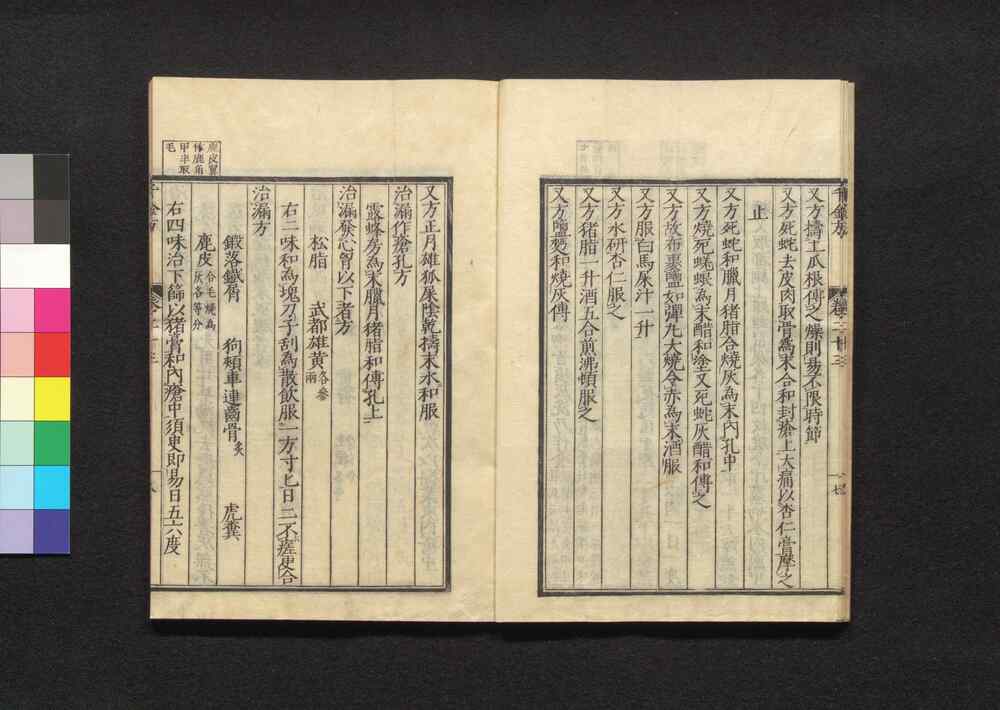 又方擣土瓜根傅之燥則易不限時節
又方死蛇去皮肉取骨為末合和封瘡上大痛以杏仁膏摩之
止
又方死蛇和臘月猪脂合燒灰為末内孔中
又方燒死蜣蜋為末醋和塗又死蛇灰醋和傅之
又方故布裹鹽如彈丸大燒令赤為末酒服
又方服白馬尿汁一升
又方水研杏仁服之
又方猪脂一升酒五合煎沸頓服之
又方鹽麫和燒灰傅
又方正月雄狐屎陰乾擣末水和服
治漏作瘡孔方
露蜂房為末臘月猪脂和傅孔上
治漏發心胷以下者方
松脂 武都雄黄各參兩
右二味和為塊刀子刮為散飲服一方寸匕日二不瘥更合
治漏方
鍛落鐵屑 狗頰車連齒骨炙 虎糞
鹿皮合毛燒為灰各等分
右四味治下篩以猪膏和内瘡中須臾即易日五六度